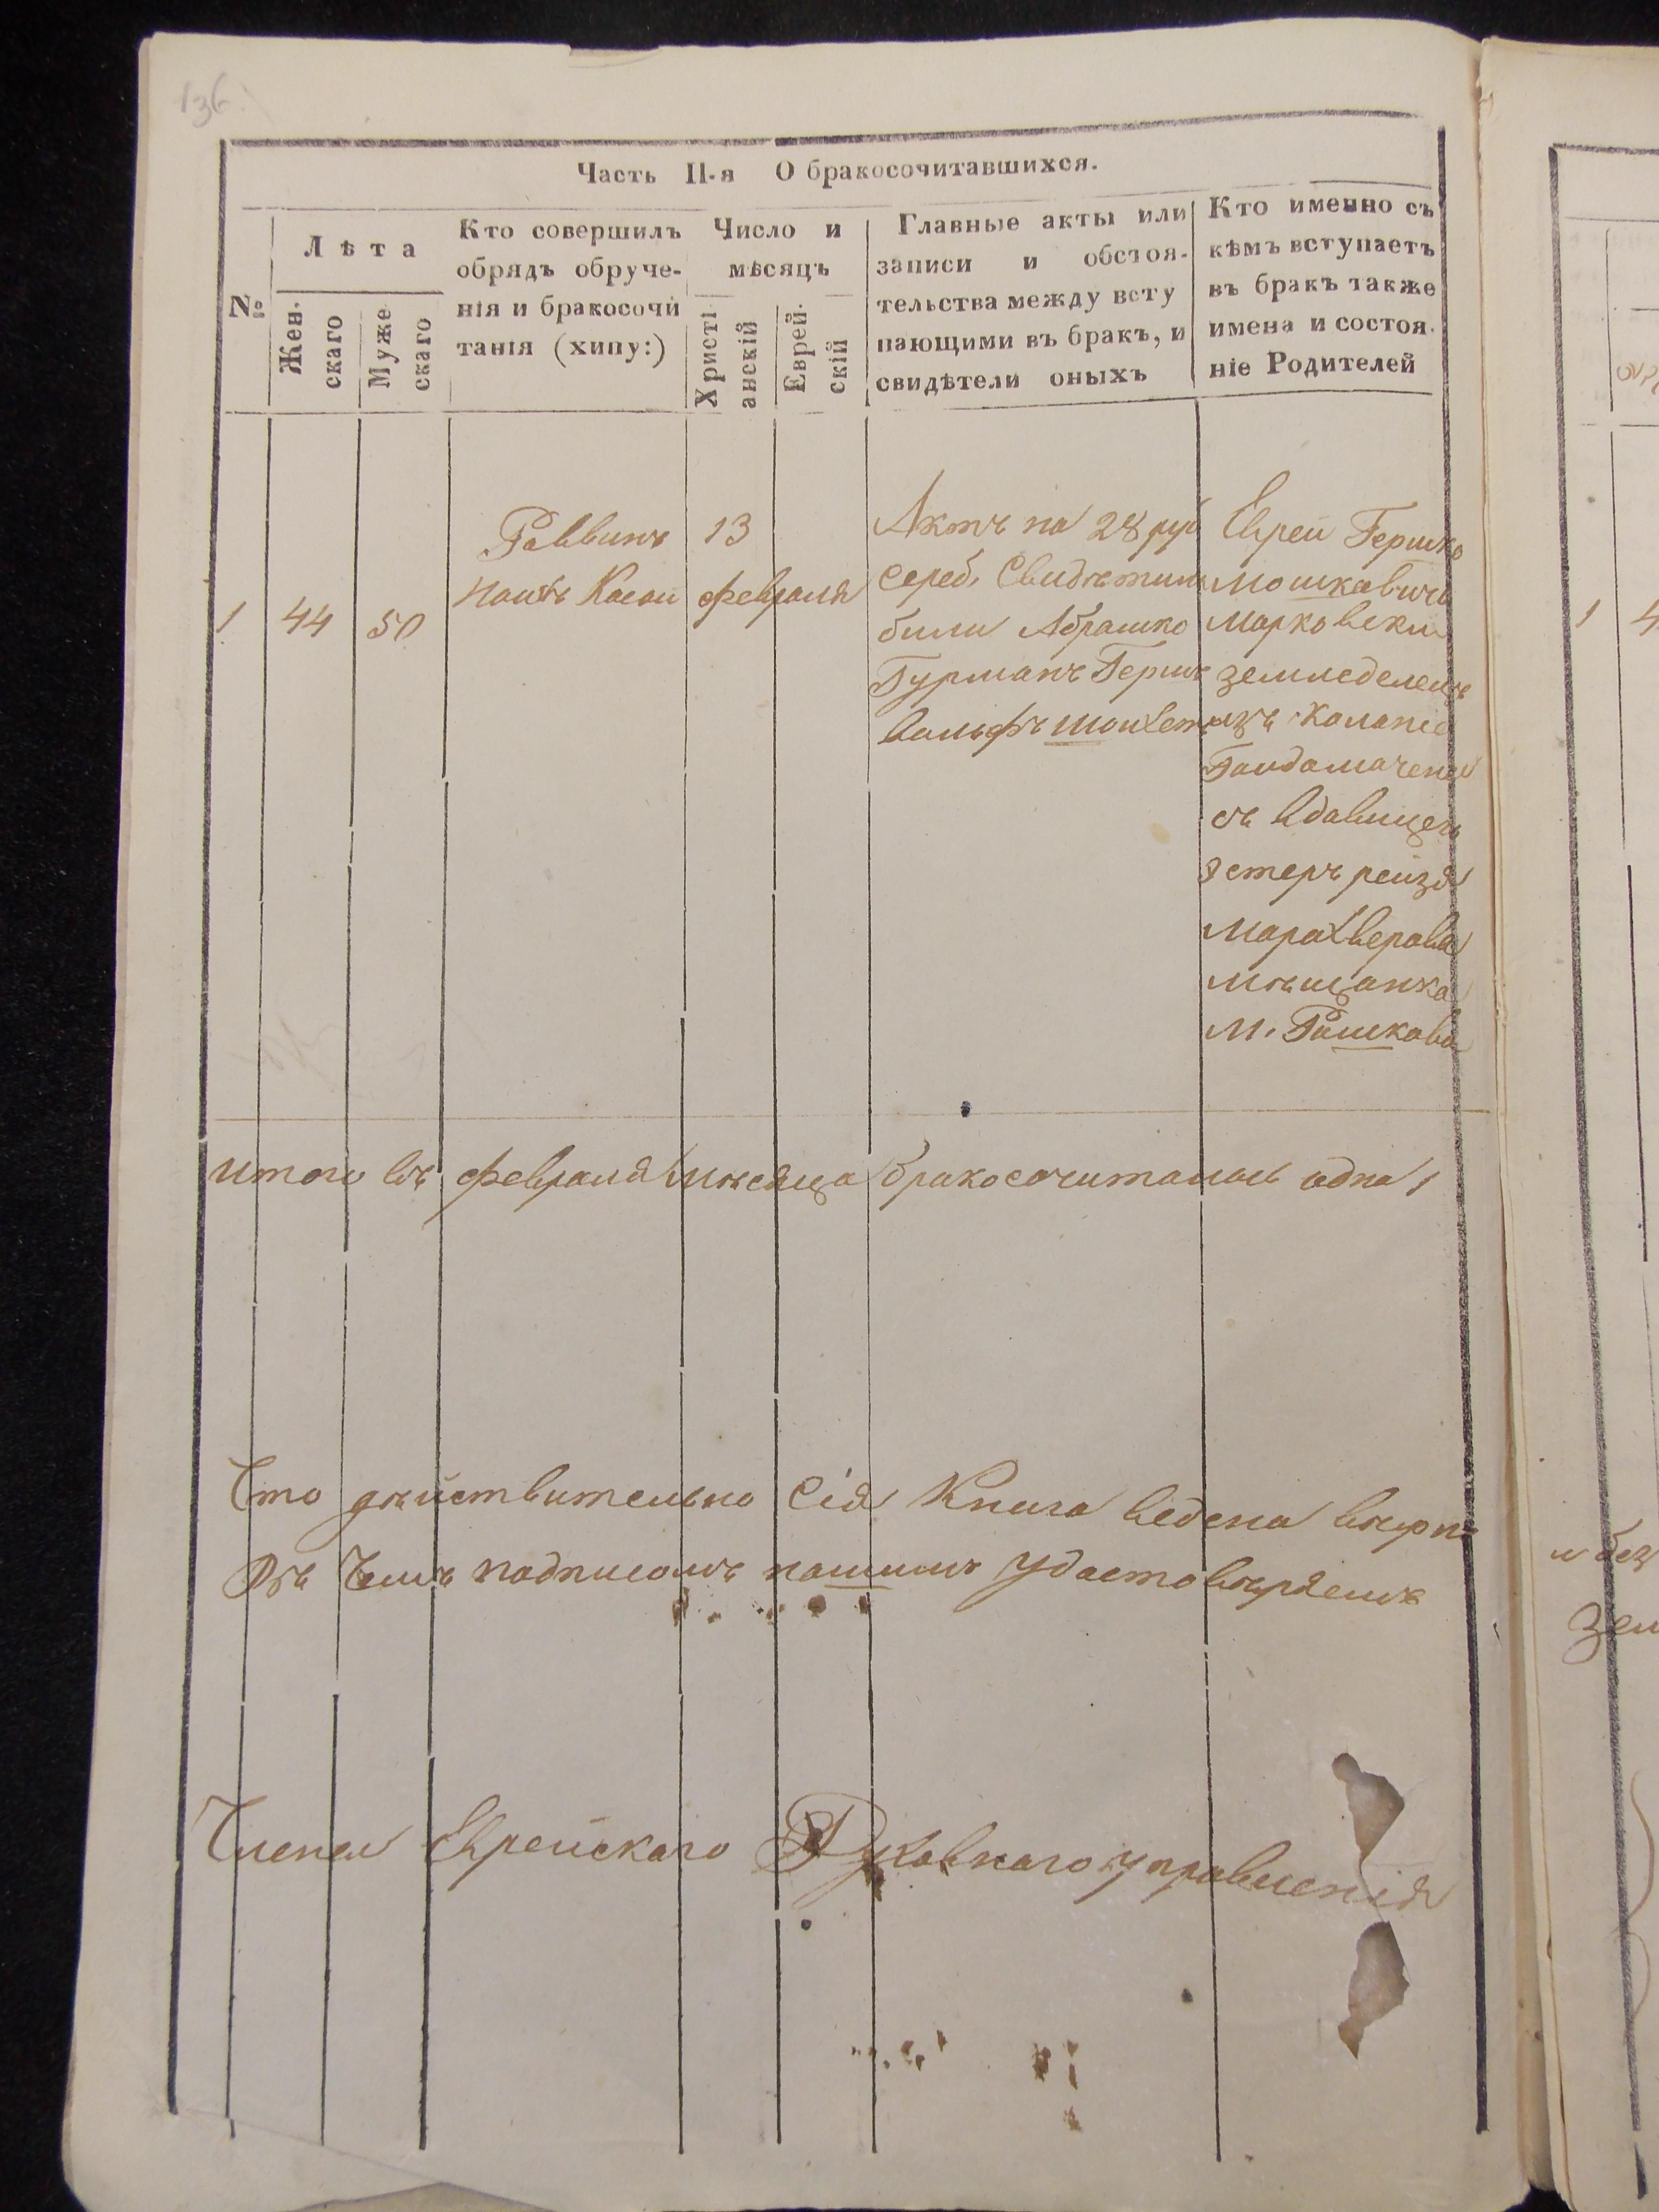 136
Часть II-я О бракосочитавшихся.
№
Лѣта
Жен.
скаго
Муже
скаго
Кто совершилъ
обрядъ обруче-
нія и бракосочи
танія (хипу:)
Число и
мѣсяцъ
Христі
анскій
Еврей.
скій
Главные акты или
записи и обстоя-
тельства между всту
пающими въ бракъ, и
свидѣтели оныхъ
Кто именно съ
кѣмъ вступаетъ
въ бракъ также
имена и состоя.
ніе Родителей
1
44
50
Раввинъ
13
февраля
Актъ на 28 руб
сереб. Свидѣтили
били Абрашко
Гурманъ Гершъ
Вольфъ шойхетъ
Еврей Гершко
Мошковичъ
Марковски
земледелецъ
изъ Колоніе
съ вдавицею
Эстеръ рейзя
Марахверова
мѣщанка
м. Рашкова
итого въ февраля мѣсяца бракосочитались одна 1
Что дѣйствительно Сія Книга ведена вѣрно
въ чемъ подписомъ нашимъ удостовѣряемъ
Члены Еврейскаго Духовнаго управленія
1